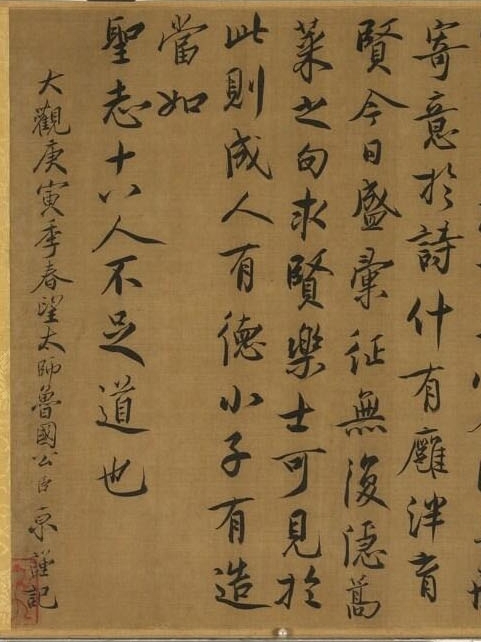 寄意於詩什有廱泮育
賢今日盛彙征無復隱蒿
萊之句求賢樂士可見於
此則成人有德小子有造
當如
聖志十八人不足道也
大觀庚寅季春望太師魯國公臣京謹記